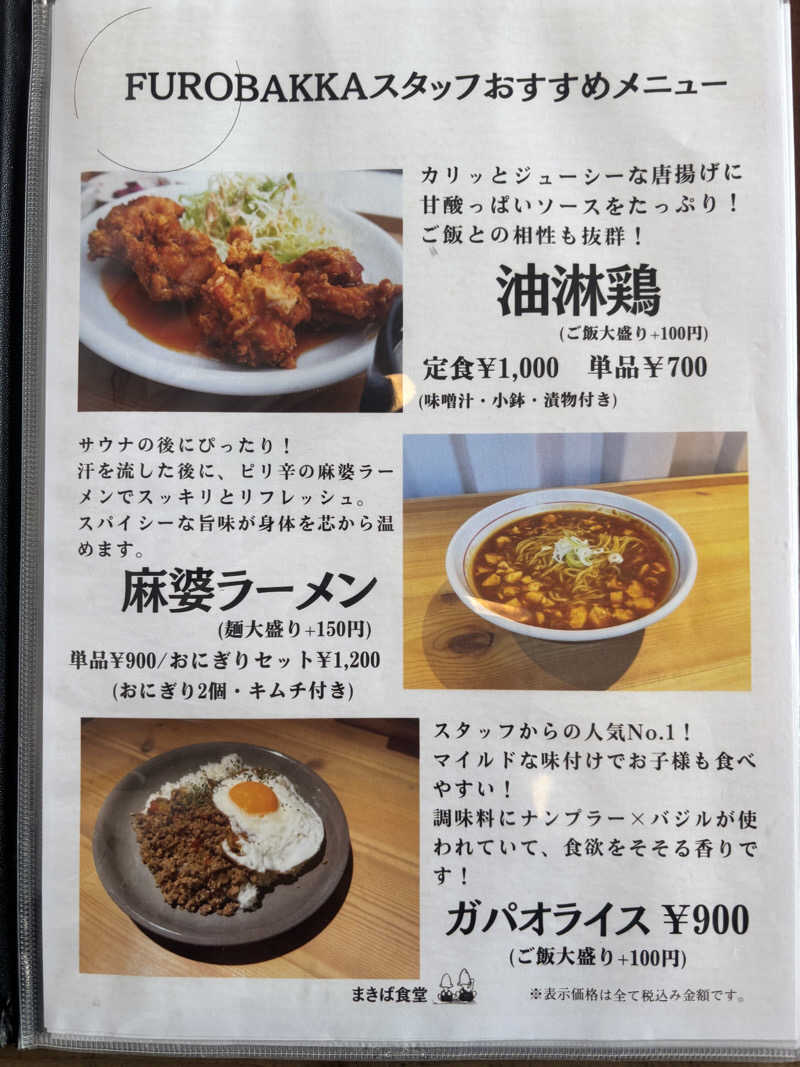 FUROBAKKAスタッフおすすめメニュー
カリッとジューシーな唐揚げに
甘酸っぱいソースをたっぷり！
ご飯との相性も抜群！
油淋鶏
(ご飯大盛り+100円)
定食¥1,000 単品¥700
(味噌汁・小鉢・漬物付き)
サウナの後にぴったり！
汗を流した後に、ピリ辛の麻婆ラー
メンでスッキリとリフレッシュ。
スパイシーな旨味が身体を芯から温
めます。
麻婆ラーメン
(麺大盛り+150円)
単品¥900/おにぎりセット¥1,200
(おにぎり2個・キムチ付き)
スタッフからの人気No.1！
マイルドな味付けでお子様も食べ
やすい！
調味料にナンプラー×バジルが使
われていて、食欲をそそる香りで
す！
ガパオライス ¥900
(ご飯大盛り+100円)
まきば食堂
※表示価格は全て税込み金額です。